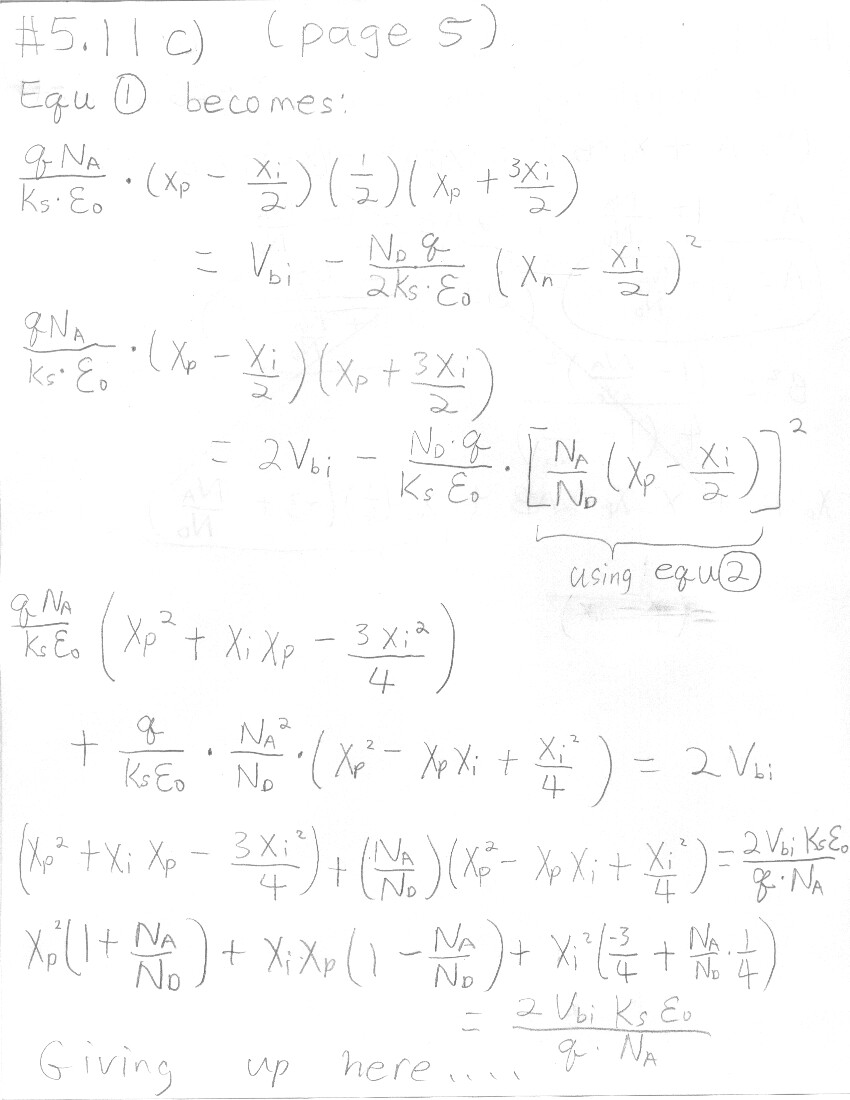 #5.11 c) (page 5).
Equ ① becomes:
qN_A/(K_S·ε₀) · (x_p − x_i/2)(1/2)(x_p + 3x_i/2)
= V_bi − N_D q/(2K_S·ε₀) (x_n − x_i/2)²
qN_A/(K_S·ε₀) · (x_p − x_i/2)(x_p + 3x_i/2)
= 2V_bi − N_D·q/(K_S ε₀) · [N_A/N_D (x_p − x_i/2)]²
using equ②
qN_A/(K_S ε₀) (x_p² + x_i x_p − 3x_i²/4)
+ q/(K_S ε₀) · N_A²/N_D · (x_p² − x_p x_i + x_i²/4) = 2V_bi
(x_p² + x_i x_p − 3x_i²/4) + (N_A/N_D)(x_p² − x_p x_i + x_i²/4) = 2V_bi K_S ε₀/(q·N_A)
x_p²(1 + N_A/N_D) + x_i x_p (1 − N_A/N_D) + x_i²(-3/4 + N_A/N_D · 1/4)
= 2 V_bi K_S ε₀/(q·N_A)
Giving up here....